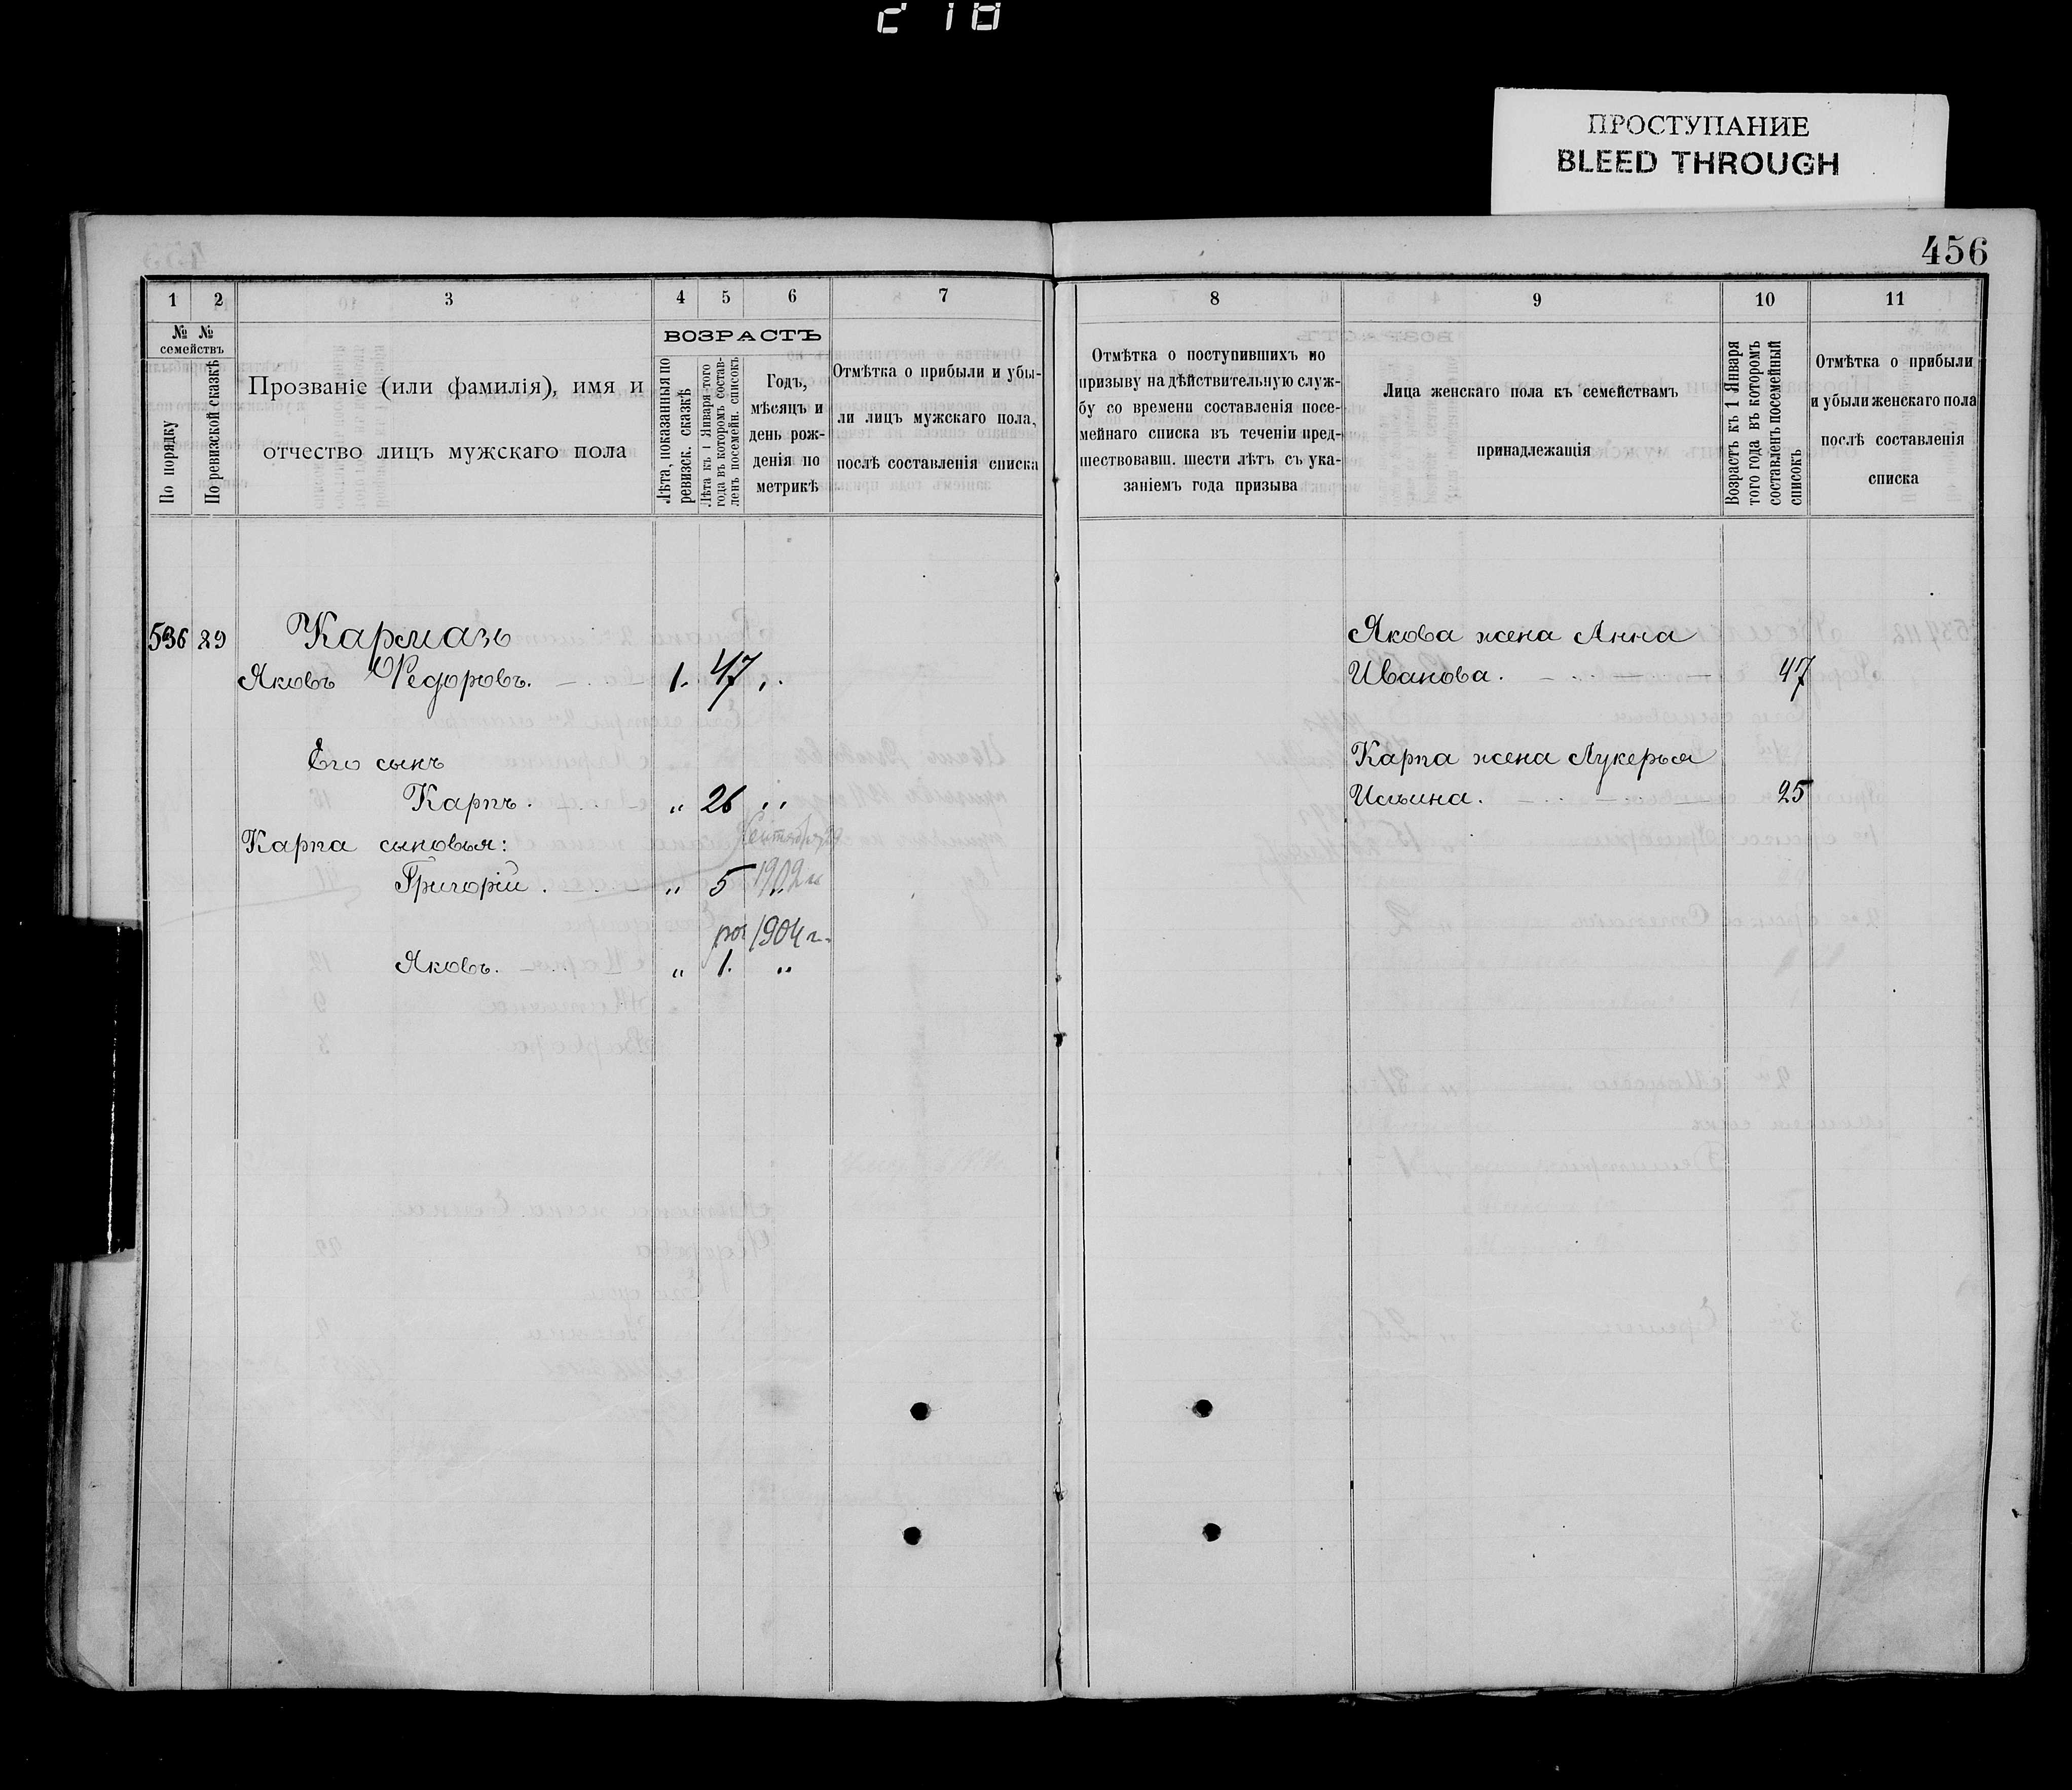 218
ПРОСТУПАНИЕ
BLEED THROUGH
456
1 2 3 4 5 6 7
№ №
семействъ
По порядку
По ревизской сказкѣ
Прозваніе (или фамилія), имя и
отчество лицъ мужскаго пола
ВОЗРАСТЪ
Лѣта, показанныя по
ревизск. сказкѣ
Лѣта къ 1 Января того
года въ которомъ состав-
ленъ посемейн. списокъ
Годъ,
мѣсяцъ и
день рож-
денія по
метрикѣ
Отмѣтка о прибыли и убы-
ли лицъ мужскаго пола,
послѣ составленія списка
536 89 Кармазь
Яковъ Ѳедоровъ. 1. 47 „
Его сынъ
Карпъ. „ 26 „
Карпа сыновья:
Григорій. „ 5 1902 „
1904 г.
Яковъ. „ 1. „
8 9 10 11
Отмѣтка о поступившихъ по
призыву на дѣйствительную служ-
бу со времени составленія посе-
мейнаго списка въ теченіи пред-
шествовавш. шести лѣтъ съ ука-
заніемъ года призыва
Лица женскаго пола къ семействамъ
принадлежащія
Возрастъ къ 1 Января
того года въ которомъ
составленъ посемейный
списокъ
Отмѣтка о прибыли
и убыли женскаго пола
послѣ составленія
списка
Якова жена Анна
Иванова. 47
Карпа жена Лукерья
Ильина. 25